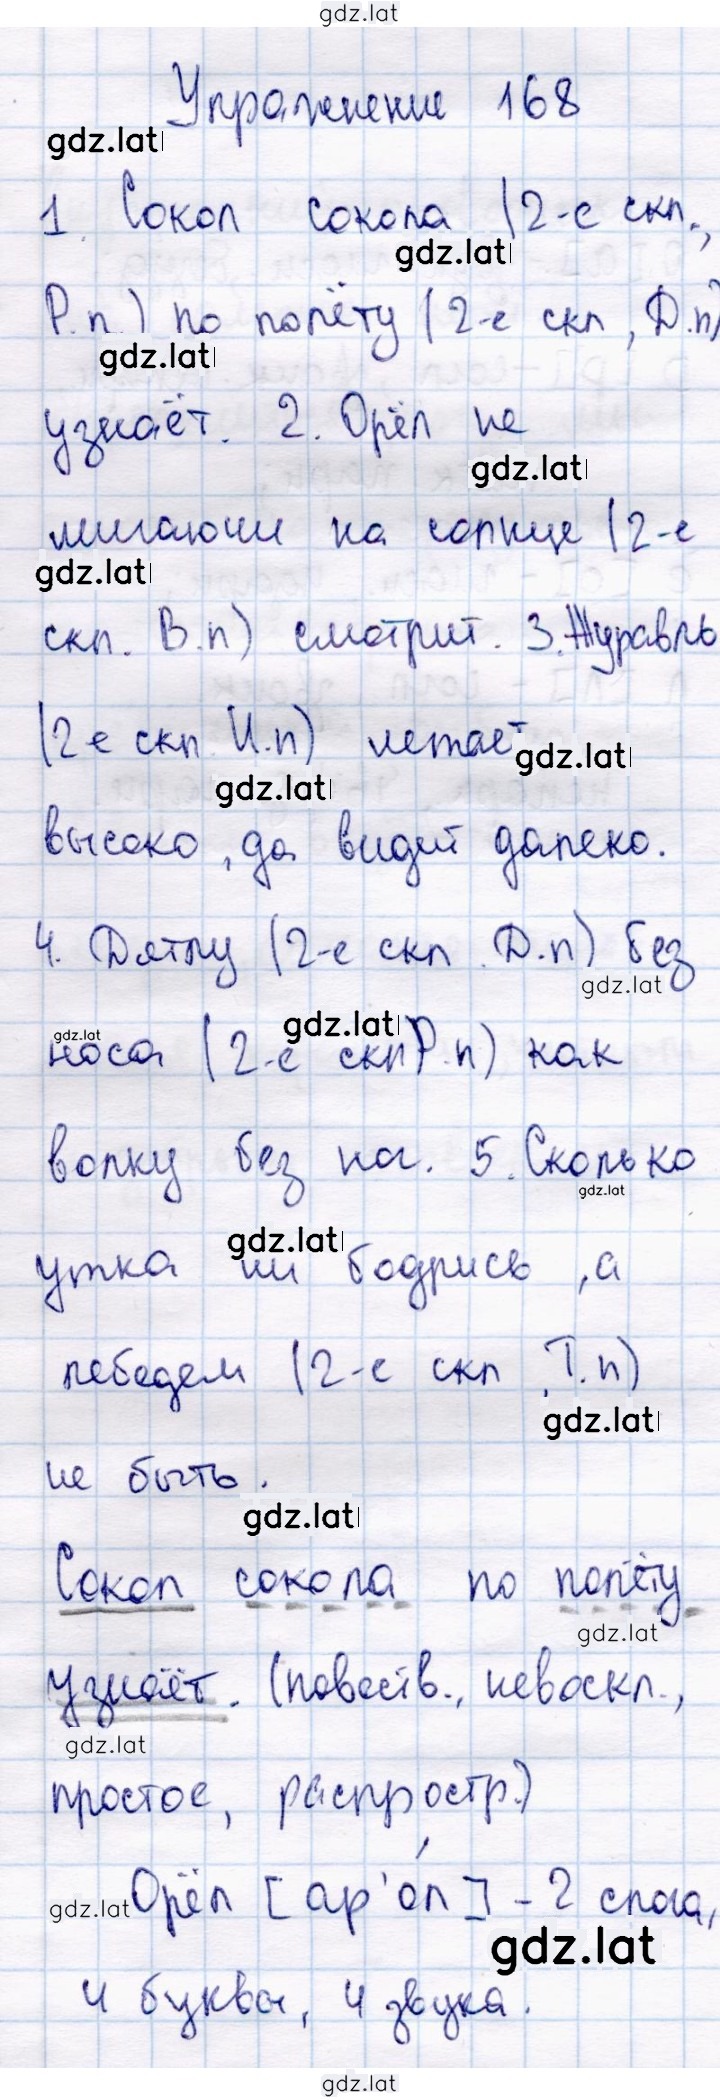 gdz.lat
Упражнение 168
gdz.lat
1. Сокол сокола (2-е скл.,
gdz.lat
Р.п.) по полёту (2-е скл, Д.п)
gdz.lat
узнаёт. 2. Орёл не
gdz.lat
мигаючи на солнце (2-е
gdz.lat
скл. В.п) смотрит. 3. Журавль
(2-е скл. И.п) летает
gdz.lat
gdz.lat
высоко, да видит далеко.
4. Дятлу (2-е скл. Д.п) без
gdz.lat
gdz.lat
gdz.lat
носа (2-е скл Р.п) как
волку без ног. 5. Сколько
gdz.lat
gdz.lat
утка ни бодрись, а
лебедем (2-е скл, Т.п)
gdz.lat
не быть.
gdz.lat
Сокол сокола по полёту
gdz.lat
узнаёт. (повеств., невоскл.,
gdz.lat
простое, распростр.)
gdz.lat Орёл [ар'ол] - 2 слога,
gdz.lat
4 буквы, 4 звука.
gdz.lat